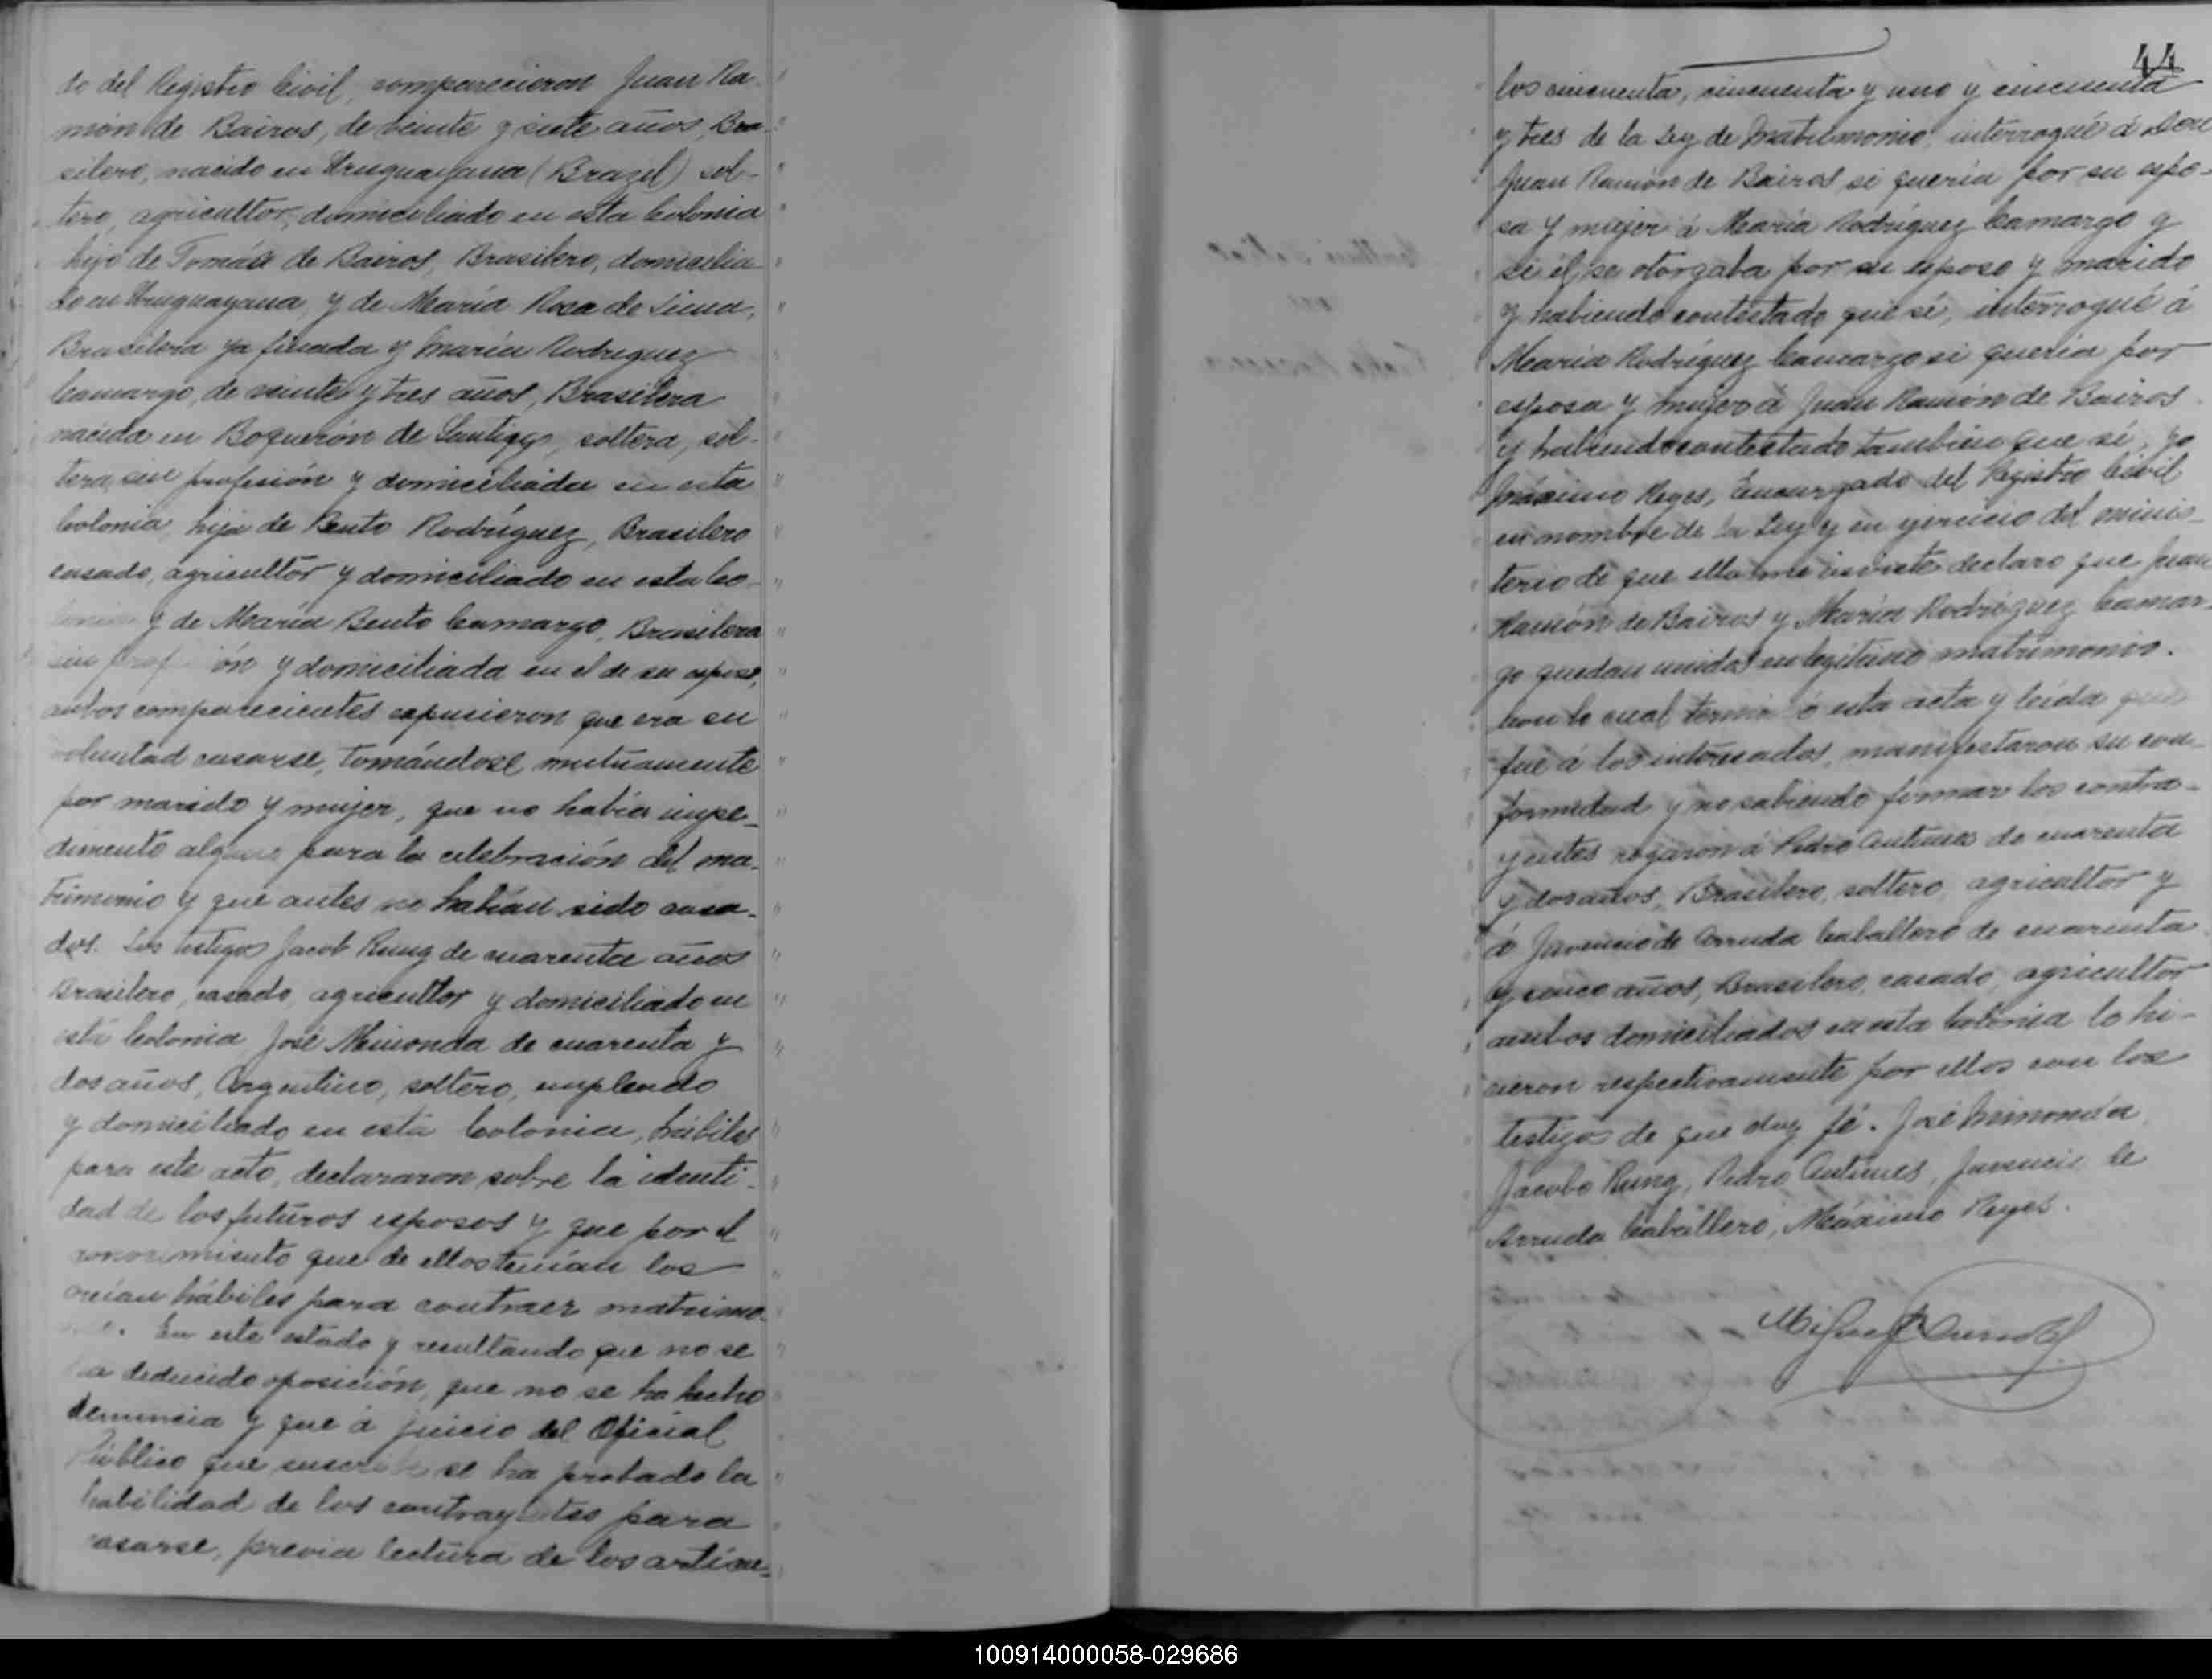 do del Registro Civil, comparecieron Juan Ra-
món de Bairos, de veinte y siete años, Bra-
silero, nacido en Uruguayana (Brazil) sol-
tero, agricultor, domiciliado en esta Colonia
hijo de Tomás de Bairos, Brasilero, domicilia-
do en Uruguayana, y de María Rosa de Lima,
Brasilera ya finada y María Rodriguez
Camargo, de veinte y tres años, Brasilera
nacida en Boquerón de Santiago, soltera, sol-
tera, sin profesión y domiciliada en esta
Colonia, hija de Bento Rodríguez, Brasilero
casado, agricultor y domiciliado en esta Co-
lonia y de María Bento Camargo, Brasilera
sin prof ión y domiciliada en el de su esposo,
ambos comparecientes expusieron que era su
voluntad casarse, tomándose mutuamente
por marido y mujer, que no había impe-
dimento alguno para la celebración del ma-
trimonio y que antes no habían sido casa-
dos. Los testigos Jacob Rung de cuarenta años
Brasilero, casado, agricultor y domiciliado en
esta Colonia José Mimonda de cuarenta y
dos años, Argentino, soltero, empleado
y domiciliado en esta Colonia, hábiles
para este acto, declararon sobre la identi-
dad de los futuros esposos y que por el
conocimiento que de ellos tenían los
creían hábiles para contraer matrimo-
nio. En este estado y resultando que no se
ha deducido oposición, que no se ha hecho
denuncia y que á juicio del Oficial
Público que suscribe se ha probado la
habilidad de los contrayentes para
casarse, previa lectura de los artícu-
44
los cincuenta, cincuenta y uno y cincuenta
y tres de la Ley de Matrimonio, interrogué á Don
Juan Ramón de Bairos si quería por su espo-
sa y mujer á María Rodríguez Camargo y
si él se otorgaba por su esposo y marido
y habiendo contestado que sí, interrogué á
María Rodríguez Camargo si queria por
esposa y mujer á Juan Ramón de Bairos
y habiendo contestado también que sí, yo
Máximo Reyes, Encargado del Registro Civil
en nombre de la Ley y en ejercicio del minis-
terio de que ella me inviste declaro que Juan
Ramón de Bairos y María Rodríguez Camar-
go quedan unidos en legítimo matrimonio.
Con lo cual terminó esta acta y leída que
fué á los interesados, manifestaron su con-
formidad y no sabiendo firmar los contra-
yentes rogaron á Pedro Antunes de cuarenta
y dos años, Brasilero, soltero, agricultor y
á Juvencio de Arruda Caballero de cuarenta
y cinco años, Brasilero, casado, agricultor
ambos domiciliados en esta Colonia lo hi-
cieron respectivamente por ellos con los
testigos de que doy fé. José Mimonda
Jacobo Rung, Pedro Antunes, Juvencio de
Arruda Caballero, Máximo Reyes.
100914000058-029686